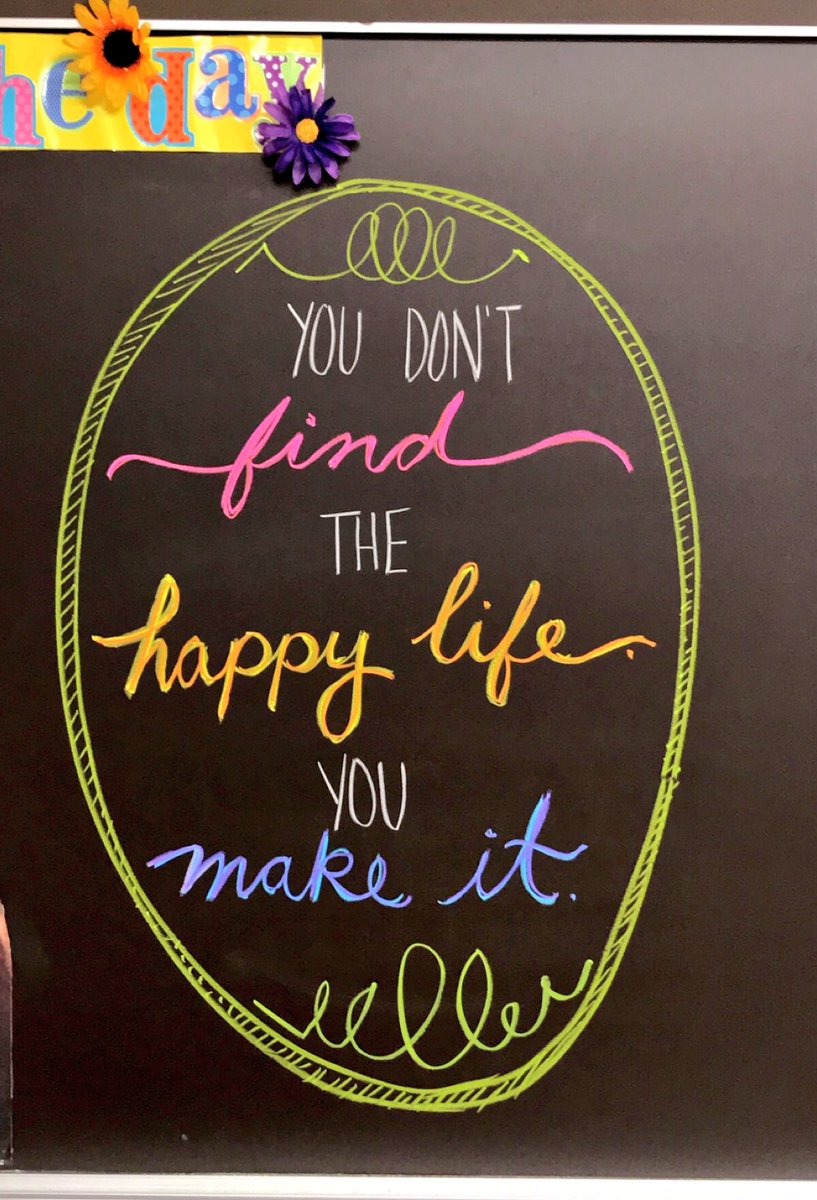 he day
YOU DON'T
find
THE
happy life.
YOU
make it.